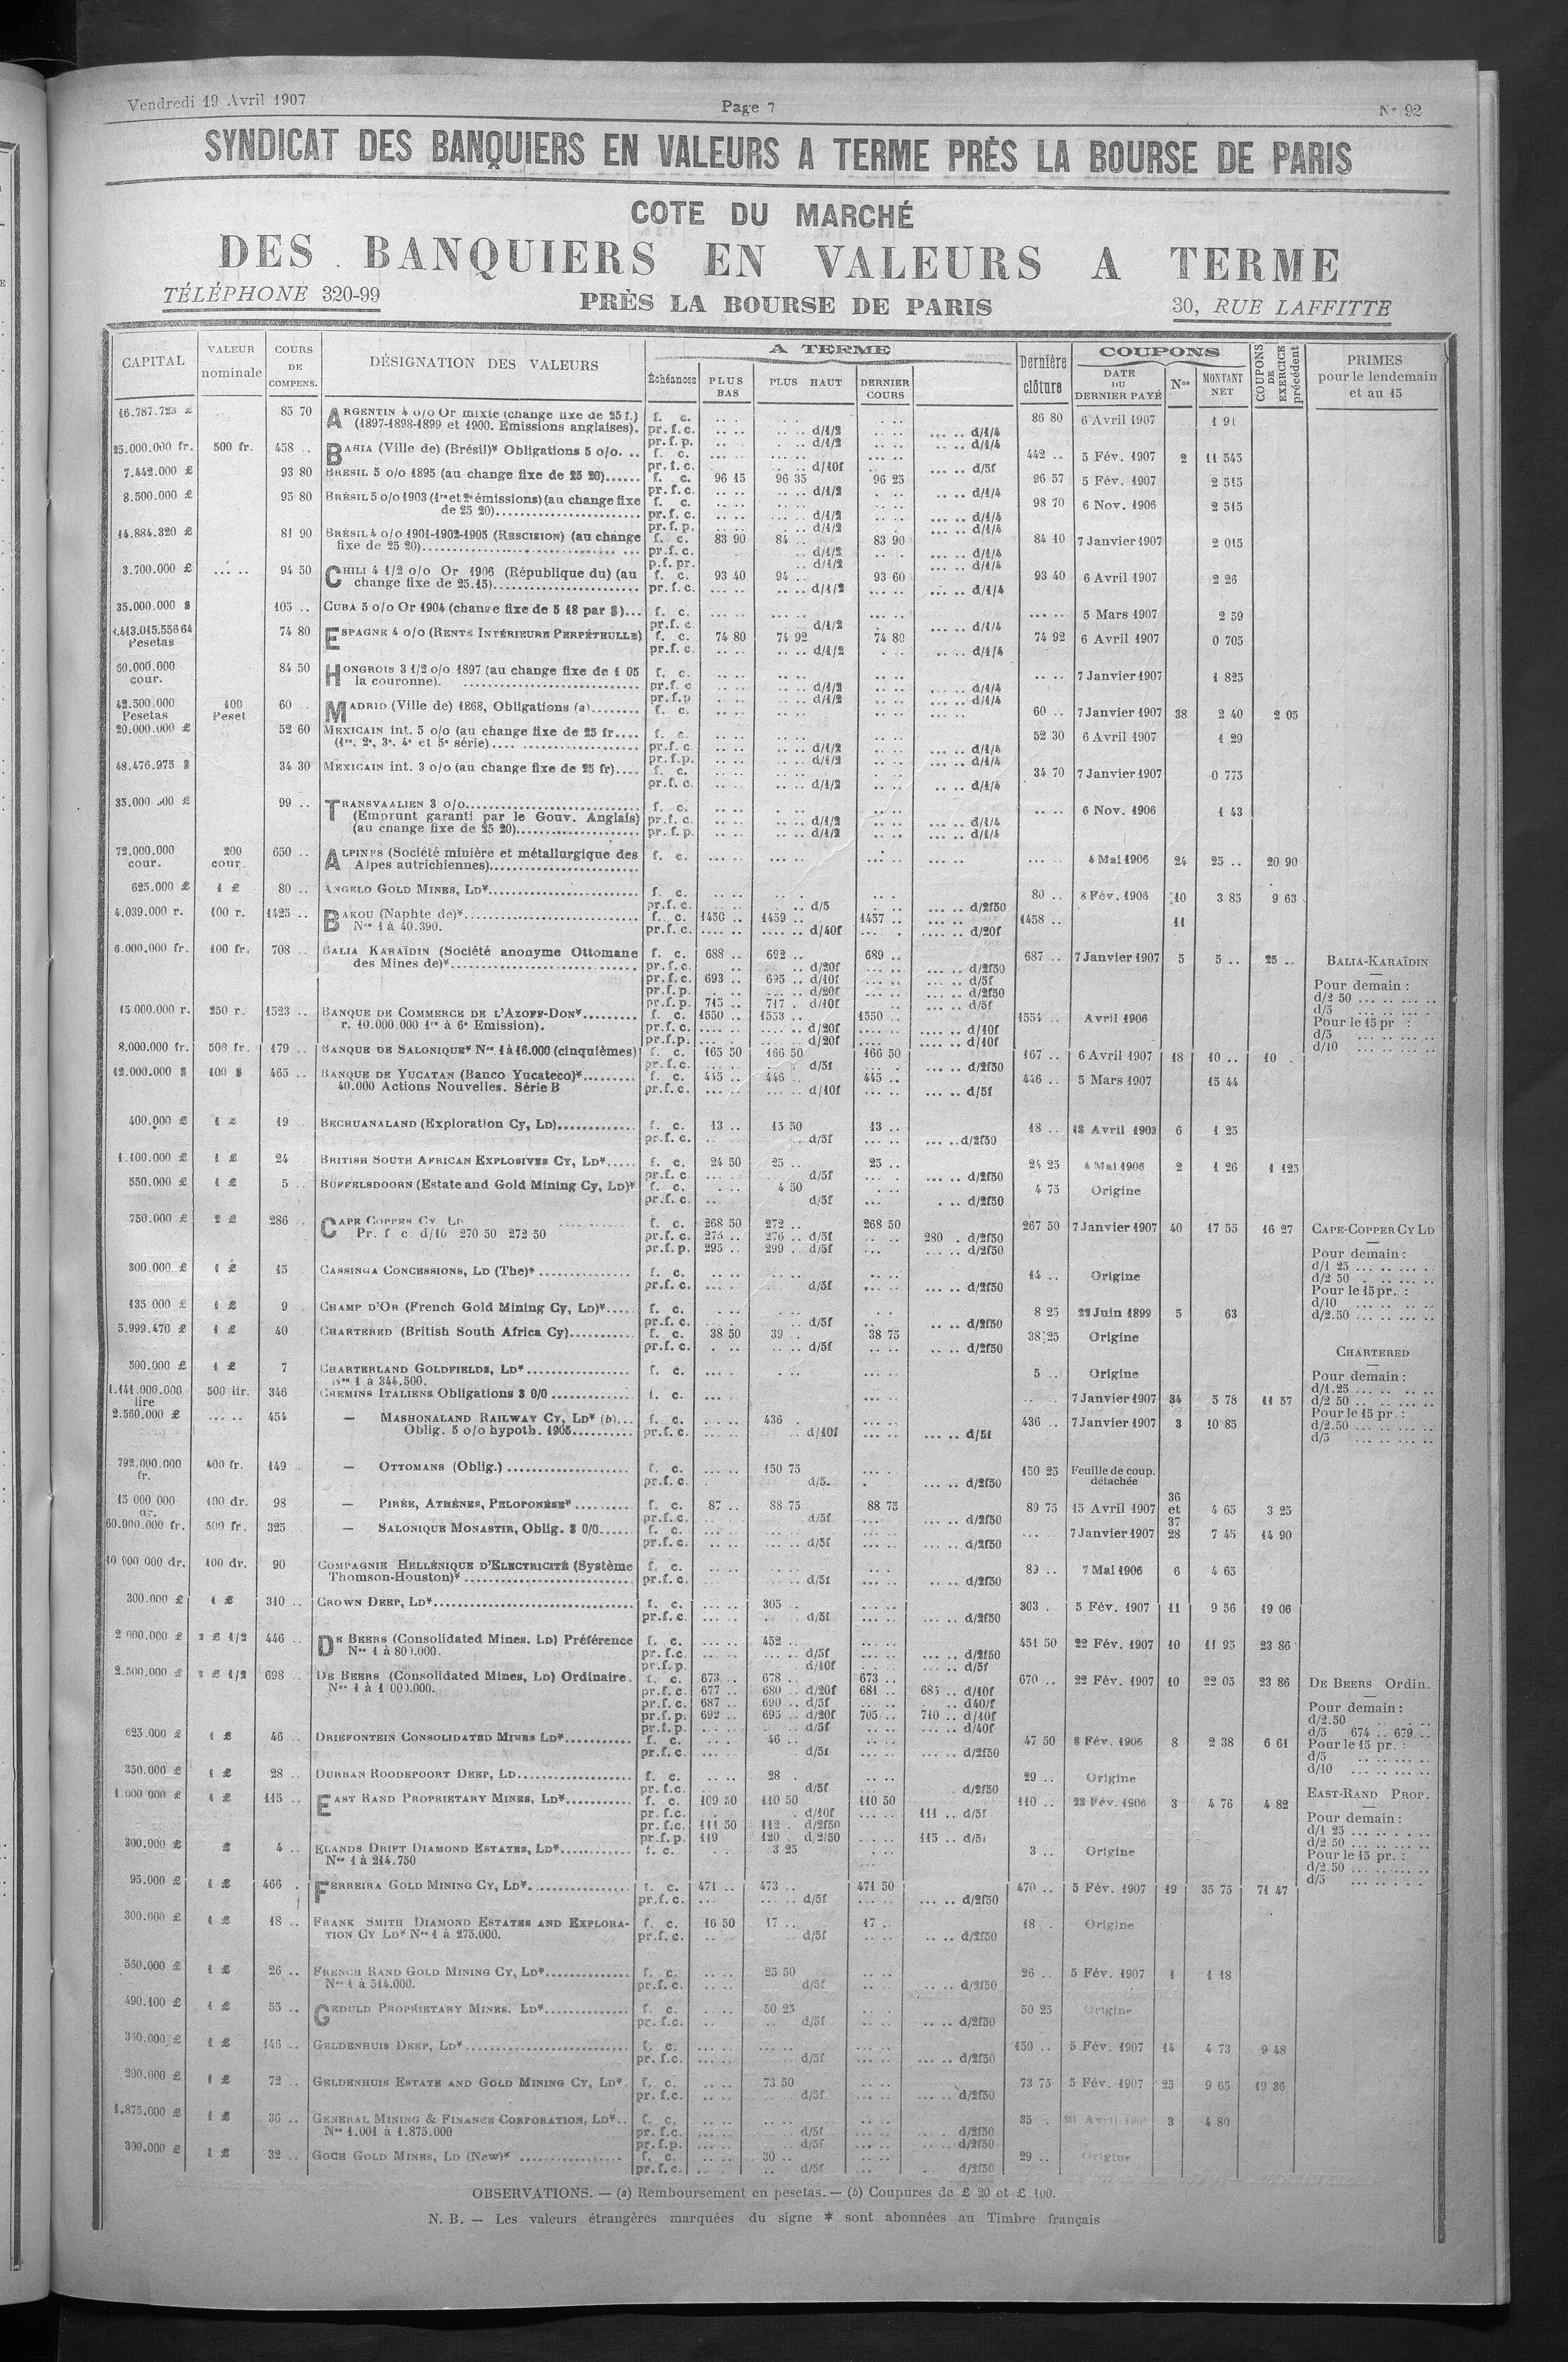 Vendredi 19 Avril 1907 Page 7 N° 92
SYNDICAT DES BANQUIERS EN VALEURS A TERME PRÈS LA BOURSE DE PARIS
COTE DU MARCHÉ
DES BANQUIERS EN VALEURS A TERME
TÉLÉPHONE 320-99 PRÈS LA BOURSE DE PARIS 30, RUE LAFFITTE
CAPITAL VALEUR nominale COURS DE COMPENS. DÉSIGNATION DES VALEURS A TERME Échéances PLUS BAS PLUS HAUT DERNIER COURS Dernière clôture COUPONS DATE DU DERNIER PAYÉ Nos MONTANT NET COUPONS DE EXERCICE précédent PRIMES pour le lendemain et au 15
16.787.723 £ 85 70 ARGENTIN 4 o/o Or mixte (change fixe de 25 f.) f. c. 86 80 6 Avril 1907 1 91
(1897-1898-1899 et 1900. Emissions anglaises). pr. f. c. d/1/2 d/1/4
pr. f. p. d/1/2 d/1/4
25.000.000 fr. 500 fr. 458 BAHIA (Ville de) (Brésil)* Obligations 5 o/o. f. c. 442 5 Fév. 1907 2 11 545
pr. f. c. d/10f d/5f
7.442.000 £ 93 80 BRÉSIL 5 o/o 1895 (au change fixe de 25 20) f. c. 96 15 96 35 96 25 96 57 5 Fév. 1907 2 515
pr. f. c. d/1/2 d/1/4
8.500.000 £ 95 80 BRÉSIL 5 o/o 1903 (1re et 2e émissions) (au change fixe f. c. 98 70 6 Nov. 1906 2 515
de 25 20) pr. f. c. d/1/2 d/1/4
pr. f. p. d/1/2 d/1/4
14.884.320 £ 81 90 BRÉSIL 4 o/o 1901-1902-1905 (RESCISION) (au change f. c. 83 90 84 83 90 84 10 7 Janvier 1907 2 015
fixe de 25 20) pr. f. c. d/1/2 d/1/4
p. f. pr. d/1/2 d/1/4
3.700.000 £ 94 50 CHILI 4 1/2 o/o Or 1906 (République du) (au f. c. 93 40 94 93 60 93 40 6 Avril 1907 2 26
change fixe de 25.15) pr. f. c. d/1/2 d/1/4
35.000.000 $ 105 CUBA 5 o/o Or 1904 (change fixe de 5 18 par $) f. c. 5 Mars 1907 2 59
pr. f. c. d/1/2 d/1/4
1.413.015.556 64 Pesetas 74 80 ESPAGNE 4 o/o (RENTE INTÉRIEURE PERPÉTUELLE) f. c. 74 80 74 92 74 80 74 92 6 Avril 1907 0 705
pr. f. c. d/1/2 d/1/4
60.000.000 cour. 84 50 HONGROIS 3 1/2 o/o 1897 (au change fixe de 1 05 f. c. 7 Janvier 1907 1 825
la couronne). pr. f. c. d/1/2 d/1/4
pr. f. p. d/1/2 d/1/4
42.500.000 Pesetas 100 Peset 60 MADRID (Ville de) 1868, Obligations (a) f. c. 60 7 Janvier 1907 38 2 40 2 05
20.000.000 £ 52 60 MEXICAIN int. 5 o/o (au change fixe de 25 fr. f. c. 52 30 6 Avril 1907 1 29
(1re, 2e, 3e, 4e et 5e série) pr. f. c. d/1/2 d/1/4
pr. f. p. d/1/2 d/1/4
48.476.975 $ 34 30 MEXICAIN int. 3 o/o (au change fixe de 25 fr) f. c. 34 70 7 Janvier 1907 0 775
pr. f. c. d/1/2 d/1/4
99 TRANSVAALIEN 3 o/o f. c. 6 Nov. 1906 1 43
(Emprunt garanti par le Gouv. Anglais) pr. f. c. d/1/2 d/1/4
(au change fixe de 25 20) pr. f. p. d/1/2 d/1/4
72.000.000 cour. 200 cour. 650 ALPINES (Société minière et métallurgique des f. c. 4 Mai 1906 24 25 20 90
Alpes autrichiennes)
625.000 £ 1 £ 80 ANGELO GOLD MINES, LD* f. c. 80 8 Fév. 1906 10 3 85 9 63
pr. f. c. d/5 d/2f50
4.039.000 r. 100 r. 1425 BAKOU (Naphte de)* f. c. 1450 1459 1457 1458 11
Nos 1 à 40.390. pr. f. c. d/40f d/20f
6.000.000 fr. 100 fr. 708 BALIA KARAÏDIN (Société anonyme Ottomane f. c. 688 692 689 687 7 Janvier 1907 5 5 25 BALIA-KARAÏDIN
des Mines de)* pr. f. c. d/20f d/2f50
pr. f. c. 693 695 d/10f d/5f Pour demain :
pr. f. p. d/20f d/2f50 d/2 50
pr. f. p. 715 717 d/10f d/5f d/5
15.000.000 r. 250 r. 1523 BANQUE DE COMMERCE DE L'AZOFF-DON* f. c. 1550 1553 1550 1554 Avril 1906 Pour le 15 pr :
r. 10.000.000 1re à 6e Emission). pr. f. c. d/20f d/10f d/5
pr. f. p. d/20f d/10f d/10
8.000.000 fr. 500 fr. 179 BANQUE DE SALONIQUE* Nos 1 à 16.000 (cinquièmes) f. c. 165 50 166 50 166 50 167 6 Avril 1907 18 10 10
pr. f. c. d/5f d/2f50
12.000.000 $ 100 $ 465 BANQUE DE YUCATAN (Banco Yucateco)* f. c. 445 446 445 446 5 Mars 1907 15 44
40.000 Actions Nouvelles. Série B pr. f. c. d/10f d/5f
400.000 £ 1 £ 19 BECHUANALAND (Exploration Cy, LD) f. c. 13 13 50 13 18 18 Avril 1903 6 1 25
pr. f. c. d/5f d/2f50
1.100.000 £ 1 £ 24 BRITISH SOUTH AFRICAN EXPLOSIVES CY, LD* f. c. 24 50 25 25 24 25 4 Mai 1906 2 1 26 1 125
pr. f. c. d/5f d/2f50
550.000 £ 1 £ 5 BUFFELSDOORN (Estate and Gold Mining Cy, LD)* f. c. 4 50 4 75 Origine
pr. f. c. d/5f d/2f50
750.000 £ 2 £ 286 CAPE COPPER CY LD f. c. 268 50 272 268 50 267 50 7 Janvier 1907 40 17 55 16 27 CAPE-COPPER CY LD
Pr. f c d/10 270 50 272 50 pr. f. c. 275 276 d/5f 280 d/2f50
pr. f. p. 295 299 d/5f d/2f50 Pour demain :
300.000 £ 1 £ 15 CASSINGA CONCESSIONS, LD (The)* f. c. 14 Origine d/1 25
pr. f. c. d/5f d/2f50 d/2 50
Pour le 15 pr. :
135 000 £ 1 £ 9 CHAMP D'OR (French Gold Mining Cy, LD)* f. c. 8 25 Juin 1899 5 63 d/10
pr. f. c. d/5f d/2f50 d/2.50
5.999.470 £ 1 £ 40 CHARTERED (British South Africa Cy) f. c. 38 50 39 38 75 38 25 Origine
pr. f. c. d/5f d/2f50 CHARTERED
500.000 £ 1 £ 7 CHARTERLAND GOLDFIELDS, LD* f. c. 5 Origine
Nos 1 à 344.500. Pour demain :
1.141.000.000 lire 500 lir. 346 CHEMINS ITALIENS Obligations 3 0/0 f. c. 7 Janvier 1907 34 5 78 11 57 d/1.25
d/2 50
2.560.000 £ 454 — MASHONALAND RAILWAY CY, LD* (b) f. c. 436 436 7 Janvier 1907 3 10 85 Pour le 15 pr :
Oblig. 5 o/o hypoth. 1905 pr. f. c. d/10f d/5f d/2.50
d/5
792.000.000 fr. 400 fr. 149 — OTTOMANS (Oblig.) f. c. 150 75 150 25 Feuille de coup. détachée
pr. f. c. d/5 d/2f50
15 000 000 dr. 100 dr. 98 — PIRÉE, ATHÈNES, PELOPONÈSE* f. c. 87 88 75 88 75 89 75 15 Avril 1907 36 et 37 4 65 3 25
pr. f. c. d/5f d/2f50
60.000.000 fr. 500 fr. 325 — SALONIQUE MONASTIR, Oblig. 3 0/0 f. c. 7 Janvier 1907 28 7 45 14 90
pr. f. c. d/5f d/2f50
10 000 000 dr. 100 dr. 90 COMPAGNIE HELLÉNIQUE D'ELECTRICITÉ (Système f. c. 89 7 Mai 1906 6 4 65
Thomson-Houston)* pr. f. c. d/5f d/2f50
300.000 £ 1 £ 310 CROWN DEEP, LD* f. c. 305 303 5 Fév. 1907 11 9 56 19 06
pr. f. c. d/5f d/2f50
2 000.000 £ 2 £ 1/2 446 DE BEERS (Consolidated Mines. LD) Préférence f. c. 452 451 50 22 Fév. 1907 10 11 95 23 86
Nos 1 à 800.000. pr. f. c. d/5f d/2f50
pr. f. p. d/10f d/5f
2.500.000 £ 2 £ 1/2 698 DE BEERS (Consolidated Mines, LD) Ordinaire. f. c. 673 678 673 670 22 Fév. 1907 10 22 05 23 86 DE BEERS Ordin.
Nos 1 à 1 000.000. pr. f. c. 677 680 d/20f 681 685 d/10f
pr. f. c. 687 690 d/5f d40/f Pour demain :
pr. f. p. 692 695 d/20f 705 710 d/10f d/2.50
pr. f. p. d/5f d/40f d/5 674 679
625.000 £ 1 £ 46 DRIEFONTEIN CONSOLIDATED MINES LD* f. c. 46 47 50 8 Fév. 1906 8 2 38 6 61 Pour le 15 pr. :
pr. f. c. d/5f d/2f50 d/5
350.000 £ 1 £ 28 DURBAN ROODEPOORT DEEP, LD f. c. 28 29 Origine d/10
pr. f. c. d/5f d/2f50
1.000 000 £ 1 £ 115 EAST RAND PROPRIETARY MINES, LD* f. c. 109 50 110 50 110 50 110 23 Fév. 1906 3 4 76 4 82 EAST-RAND PROP.
pr. f. c. d/10f 111 d/5f
pr. f. c. 111 50 112 d/2f50 Pour demain :
pr. f. p. 119 120 d/2/50 115 d/5f d/1 25
300.000 £ £ 4 ELANDS DRIFT DIAMOND ESTATES, LD* f. c. 3 25 3 Origine d/2 50
Nos 1 à 214.750 Pour le 15 pr. :
d/2 50
95.000 £ 1 £ 466 FERREIRA GOLD MINING CY, LD* f. c. 471 473 471 50 470 5 Fév. 1907 19 35 75 71 47 d/5
pr. f. c. d/5f d/2f50
300.000 £ 1 £ 18 FRANK SMITH DIAMOND ESTATES AND EXPLORA- f. c. 16 50 17 17 18 Origine
TION CY LD* Nos 1 à 275.000. pr. f. c. d/5f d/2f50
550.000 £ 1 £ 26 FRENCH RAND GOLD MINING CY, LD* f. c. 25 50 26 5 Fév. 1907 1 1 18
Nos 1 à 514.000. pr. f. c. d/5f d/2f50
490.100 £ 1 £ 55 GEDULD PROPRIETARY MINES, LD* f. c. 50 25 50 25 Origine
pr. f. c. d/5f d/2f50
1 £ 146 GELDENHUIS DEEP, LD* f. c. 150 5 Fév. 1907 14 4 73 9 48
pr. f. c. d/5f d/2f50
200.000 £ 1 £ 72 GELDENHUIS ESTATE AND GOLD MINING CY, LD* f. c. 73 50 73 75 5 Fév. 1907 25 9 65 19 36
pr. f. c. d/5f d/2f50
1.875.000 £ 1 £ 36 GENERAL MINING & FINANCE CORPORATION, LD* f. c. 35 3 4 80
Nos 1.001 à 1.875.000 pr. f. c. d/5f d/2f50
pr. f. p. d/5f d/2f50
300.000 £ 1 £ 32 GOCH GOLD MINES, LD (New)* f. c. 30 29 Origine
pr. f. c. d/5f d/2f50
OBSERVATIONS. — (a) Remboursement en pesetas. — (b) Coupures de £ 20 et £ 100.
N. B. — Les valeurs étrangères marquées du signe * sont abonnées au Timbre français